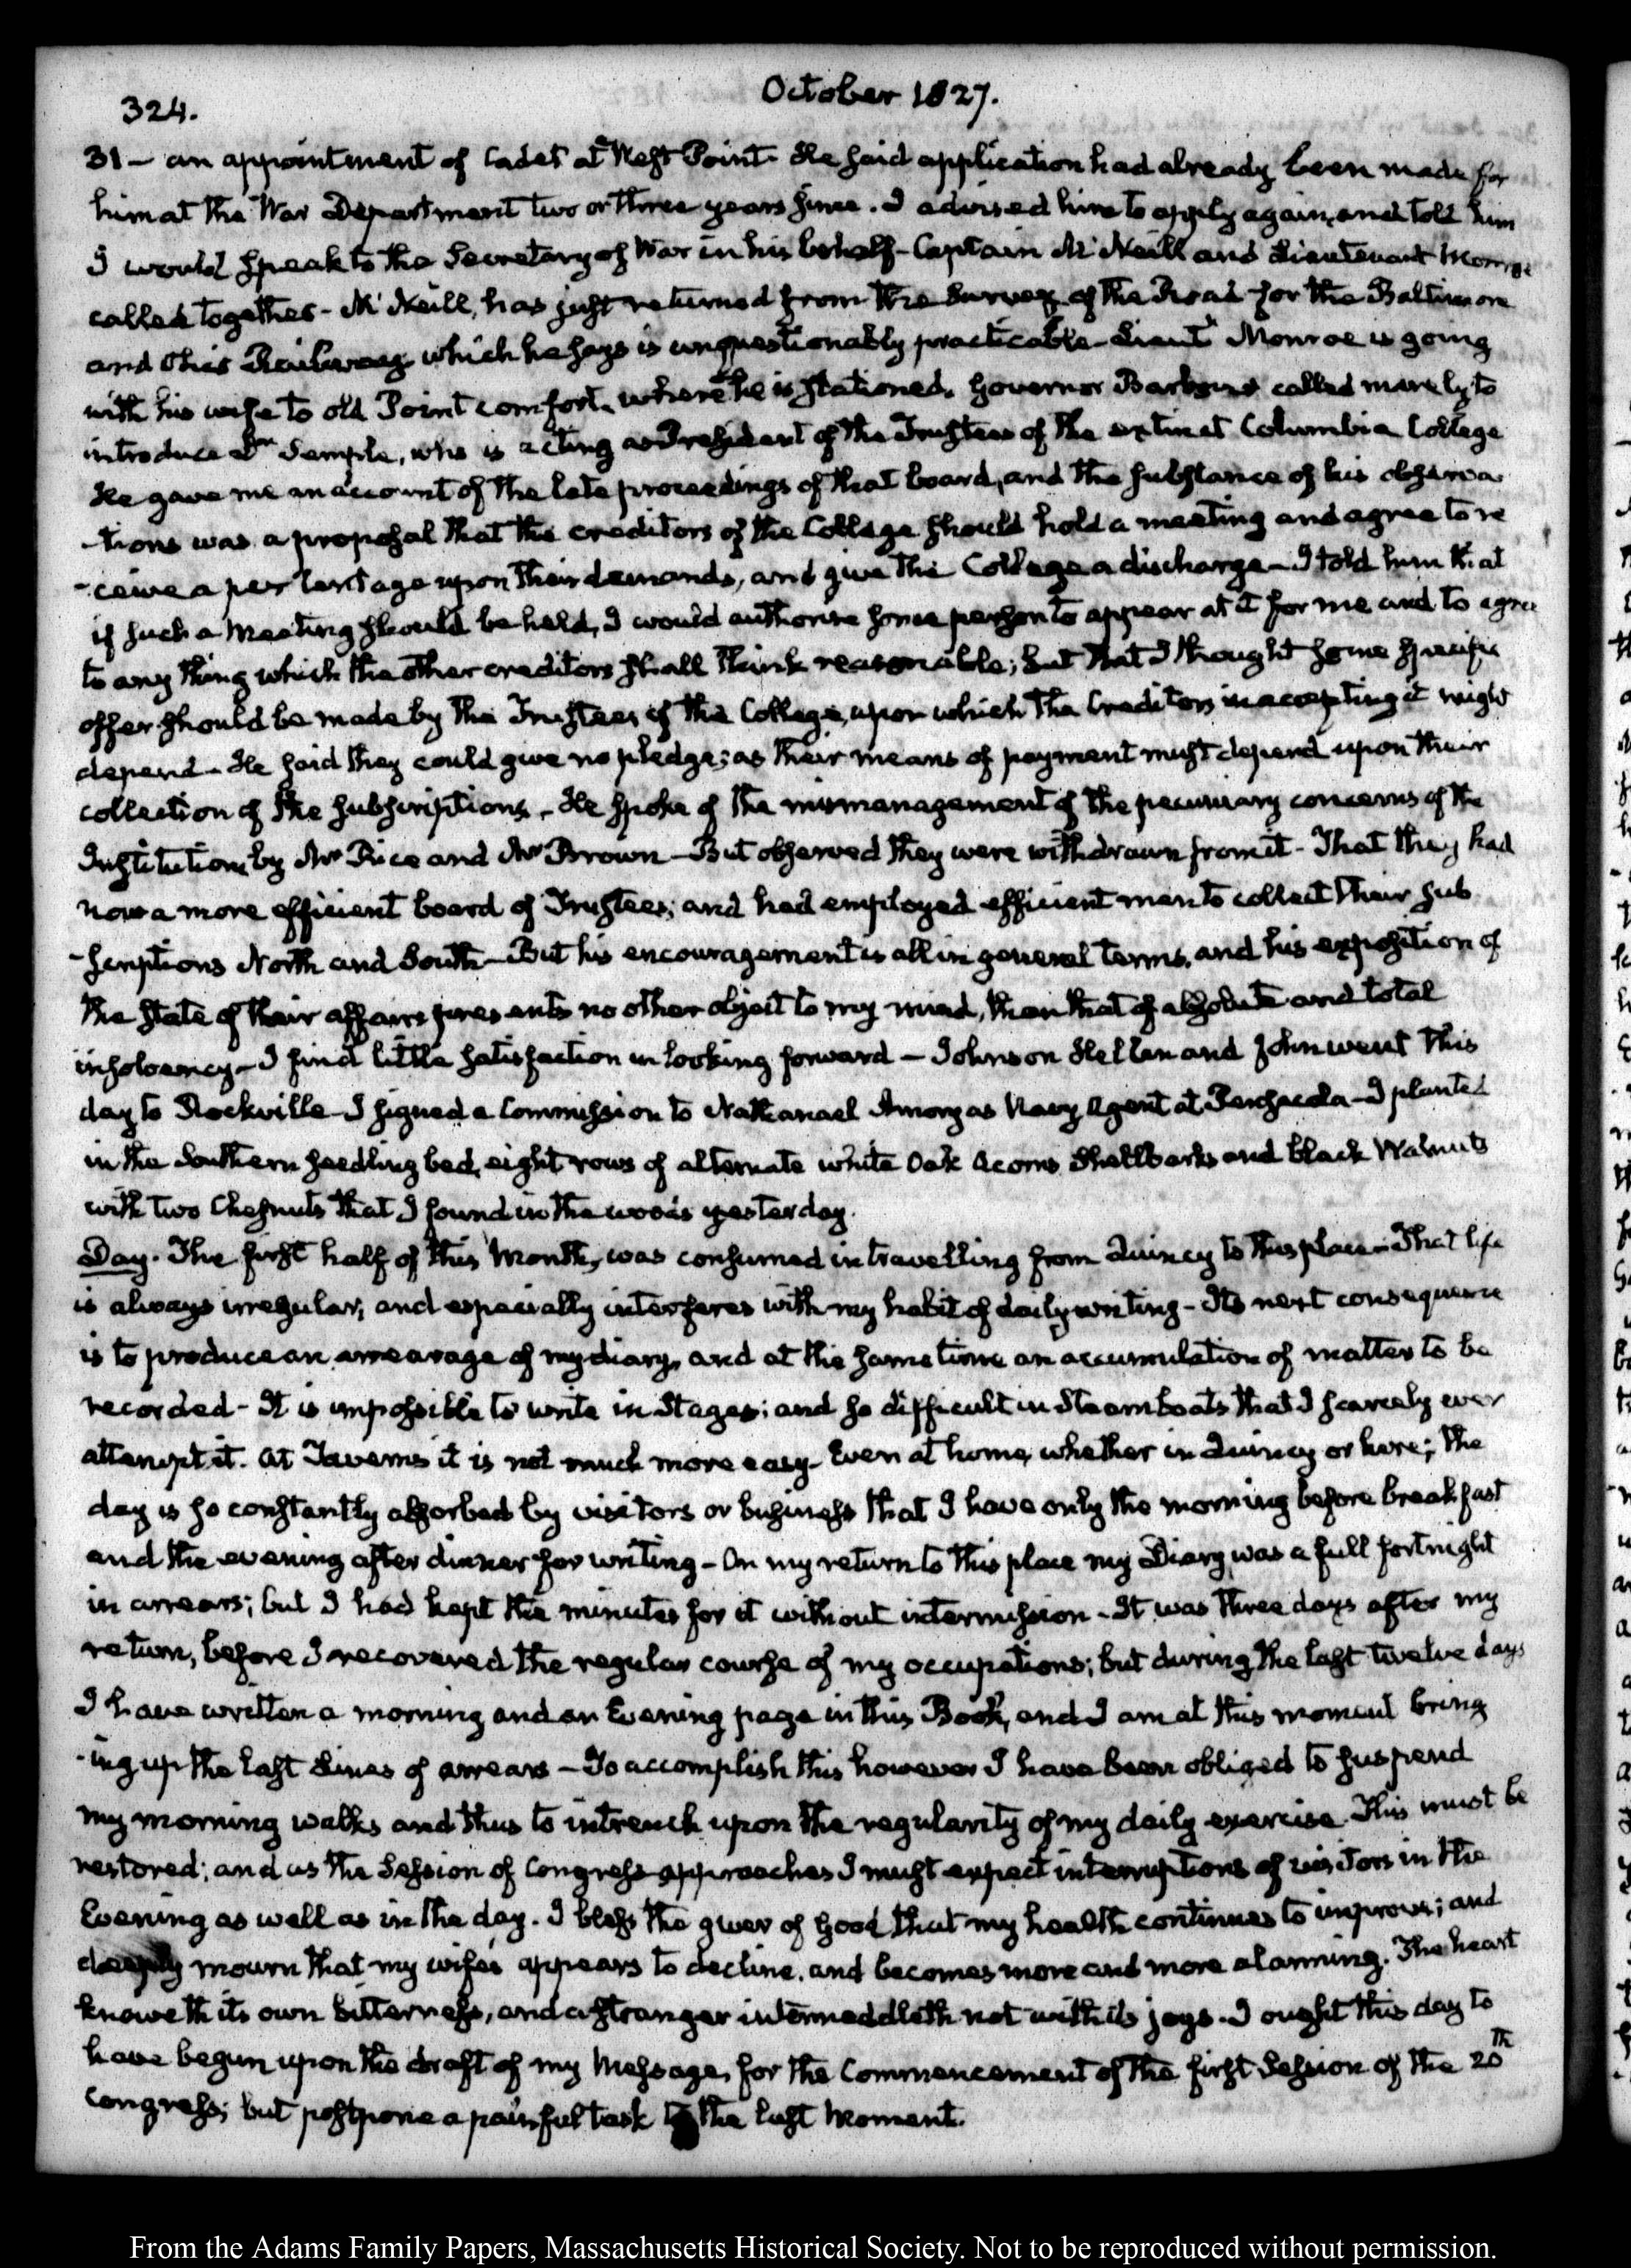 324.
October 1827.
31 — an appointment of Cadet at West Point. He said application had already been made for
him at the War Department two or three years since. I advised him to apply again, and told him
I would speak to the Secretary of War in his behalf — Captain McNeill and Lieutenant Monroe
called together — McNeill, has just returned from the Survey of the Road for the Baltimore
and Ohio Railway which he says is unquestionably practicable — Lieut.t Monroe is going
with his wife to old Point comfort, where he is stationed. Governor Barbour called merely to
introduce Dr. Semple, who is acting as President of the Trustees of the extinct Columbia College
He gave me an account of the late proceedings of that board, and the substance of his observa
-tions was a proposal that the creditors of the College should hold a meeting and agree to re
-ceive a per Centage upon their demands, and give the College a discharge — I told him that
if such a Meeting should be held, I would authorise some person to appear at it for me and to agree
to any thing which the other creditors shall think reasonable; but that I thought some specific
offer should be made by the Trustees of the College, upon which the Creditors in accepting it might
depend — He said they could give no pledge; as their means of payment must depend upon their
collection of the subscriptions. He spoke of the mismanagement of the pecuniary concerns of the
Institution, by Mr Rice and Mr Brown — But observed they were withdrawn from it — That they had
now a more efficient board of Trustees; and had employed efficient men to collect their sub
-scriptions North and South — But his encouragement is all in general terms, and his exposition of
the state of their affairs presents no other object to my mind, than that of absolute and total
insolvency — I find little satisfaction in looking forward — Johnson Hellen and John went this
day to Rockville — I signed a Commission to Nathanael Amory as Navy Agent at Pensacola — I planted
in the Southern seedling bed, eight rows of alternate white Oak Acorns, Shellbarks and black Walnuts
with two Chesnuts that I found in the woods yesterday.
Day. The first half of this Month, was consumed in travelling from Quincy to this place — That life
is always irregular; and especially interferes with my habit of daily writing — Its next consequence
is to produce an arrearage of my diary, and at the same time an accumulation of matter to be
recorded — It is impossible to write in Stages; and so difficult in Steamboats that I scarcely ever
attempt it. At Taverns it is not much more easy — Even at home, whether in Quincy or here; the
day is so constantly absorbed by visitors or business that I have only the morning before breakfast
and the evening after dinner for writing — On my return to this place my Diary was a full fortnight
in arrears; but I had kept the minutes for it without intermission — It was three days after my
return, before I recovered the regular course of my occupations; but during the last twelve days
I have written a morning and an Evening page in this Book, and I am at this moment bring
-ing up the last lines of arrears — To accomplish this however I have been obliged to suspend
my morning walks and thus to intrench upon the regularity of my daily exercise. This must be
restored; and as the Session of Congress approaches I must expect interruptions of visitors in the
Evening as well as in the day. I bless the giver of Good that my health continues to improve; and
deeply mourn that my wife's appears to decline, and becomes more and more alarming. The heart
knoweth its own bitterness, and a stranger intermeddleth not with its joys. I ought this day to
have begun upon the draft of my Message, for the Commencement of the first Session of the 20th
Congress; but postpone a painful task to the last Moment.
From the Adams Family Papers, Massachusetts Historical Society. Not to be reproduced without permission.